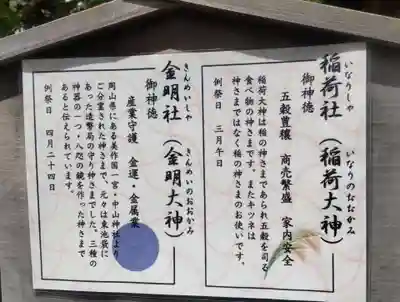 いなりしゃ いなりのおおかみ
稲荷社（稲荷大神）
御神徳
五穀豊穣 商売繁盛 家内安全
稲荷大神は稲の神さまであられ五穀を司る
食べ物の神さまです。またキツネは
神さまではなく稲の神さまのお使いです。
例祭日 三月午日
きんめいしゃ きんめいのおおかみ
金明社（金明大神）
御神徳
産業守護 金運・金属業
岡山県にある美作国一宮・中山神社より
ご分霊された神さまで、元々は東池袋に
あった造幣局の守り神さまでした。三種の
神器の一つ・八咫の鏡を作った神さまで
あると伝えられています。
例祭日 四月二十四